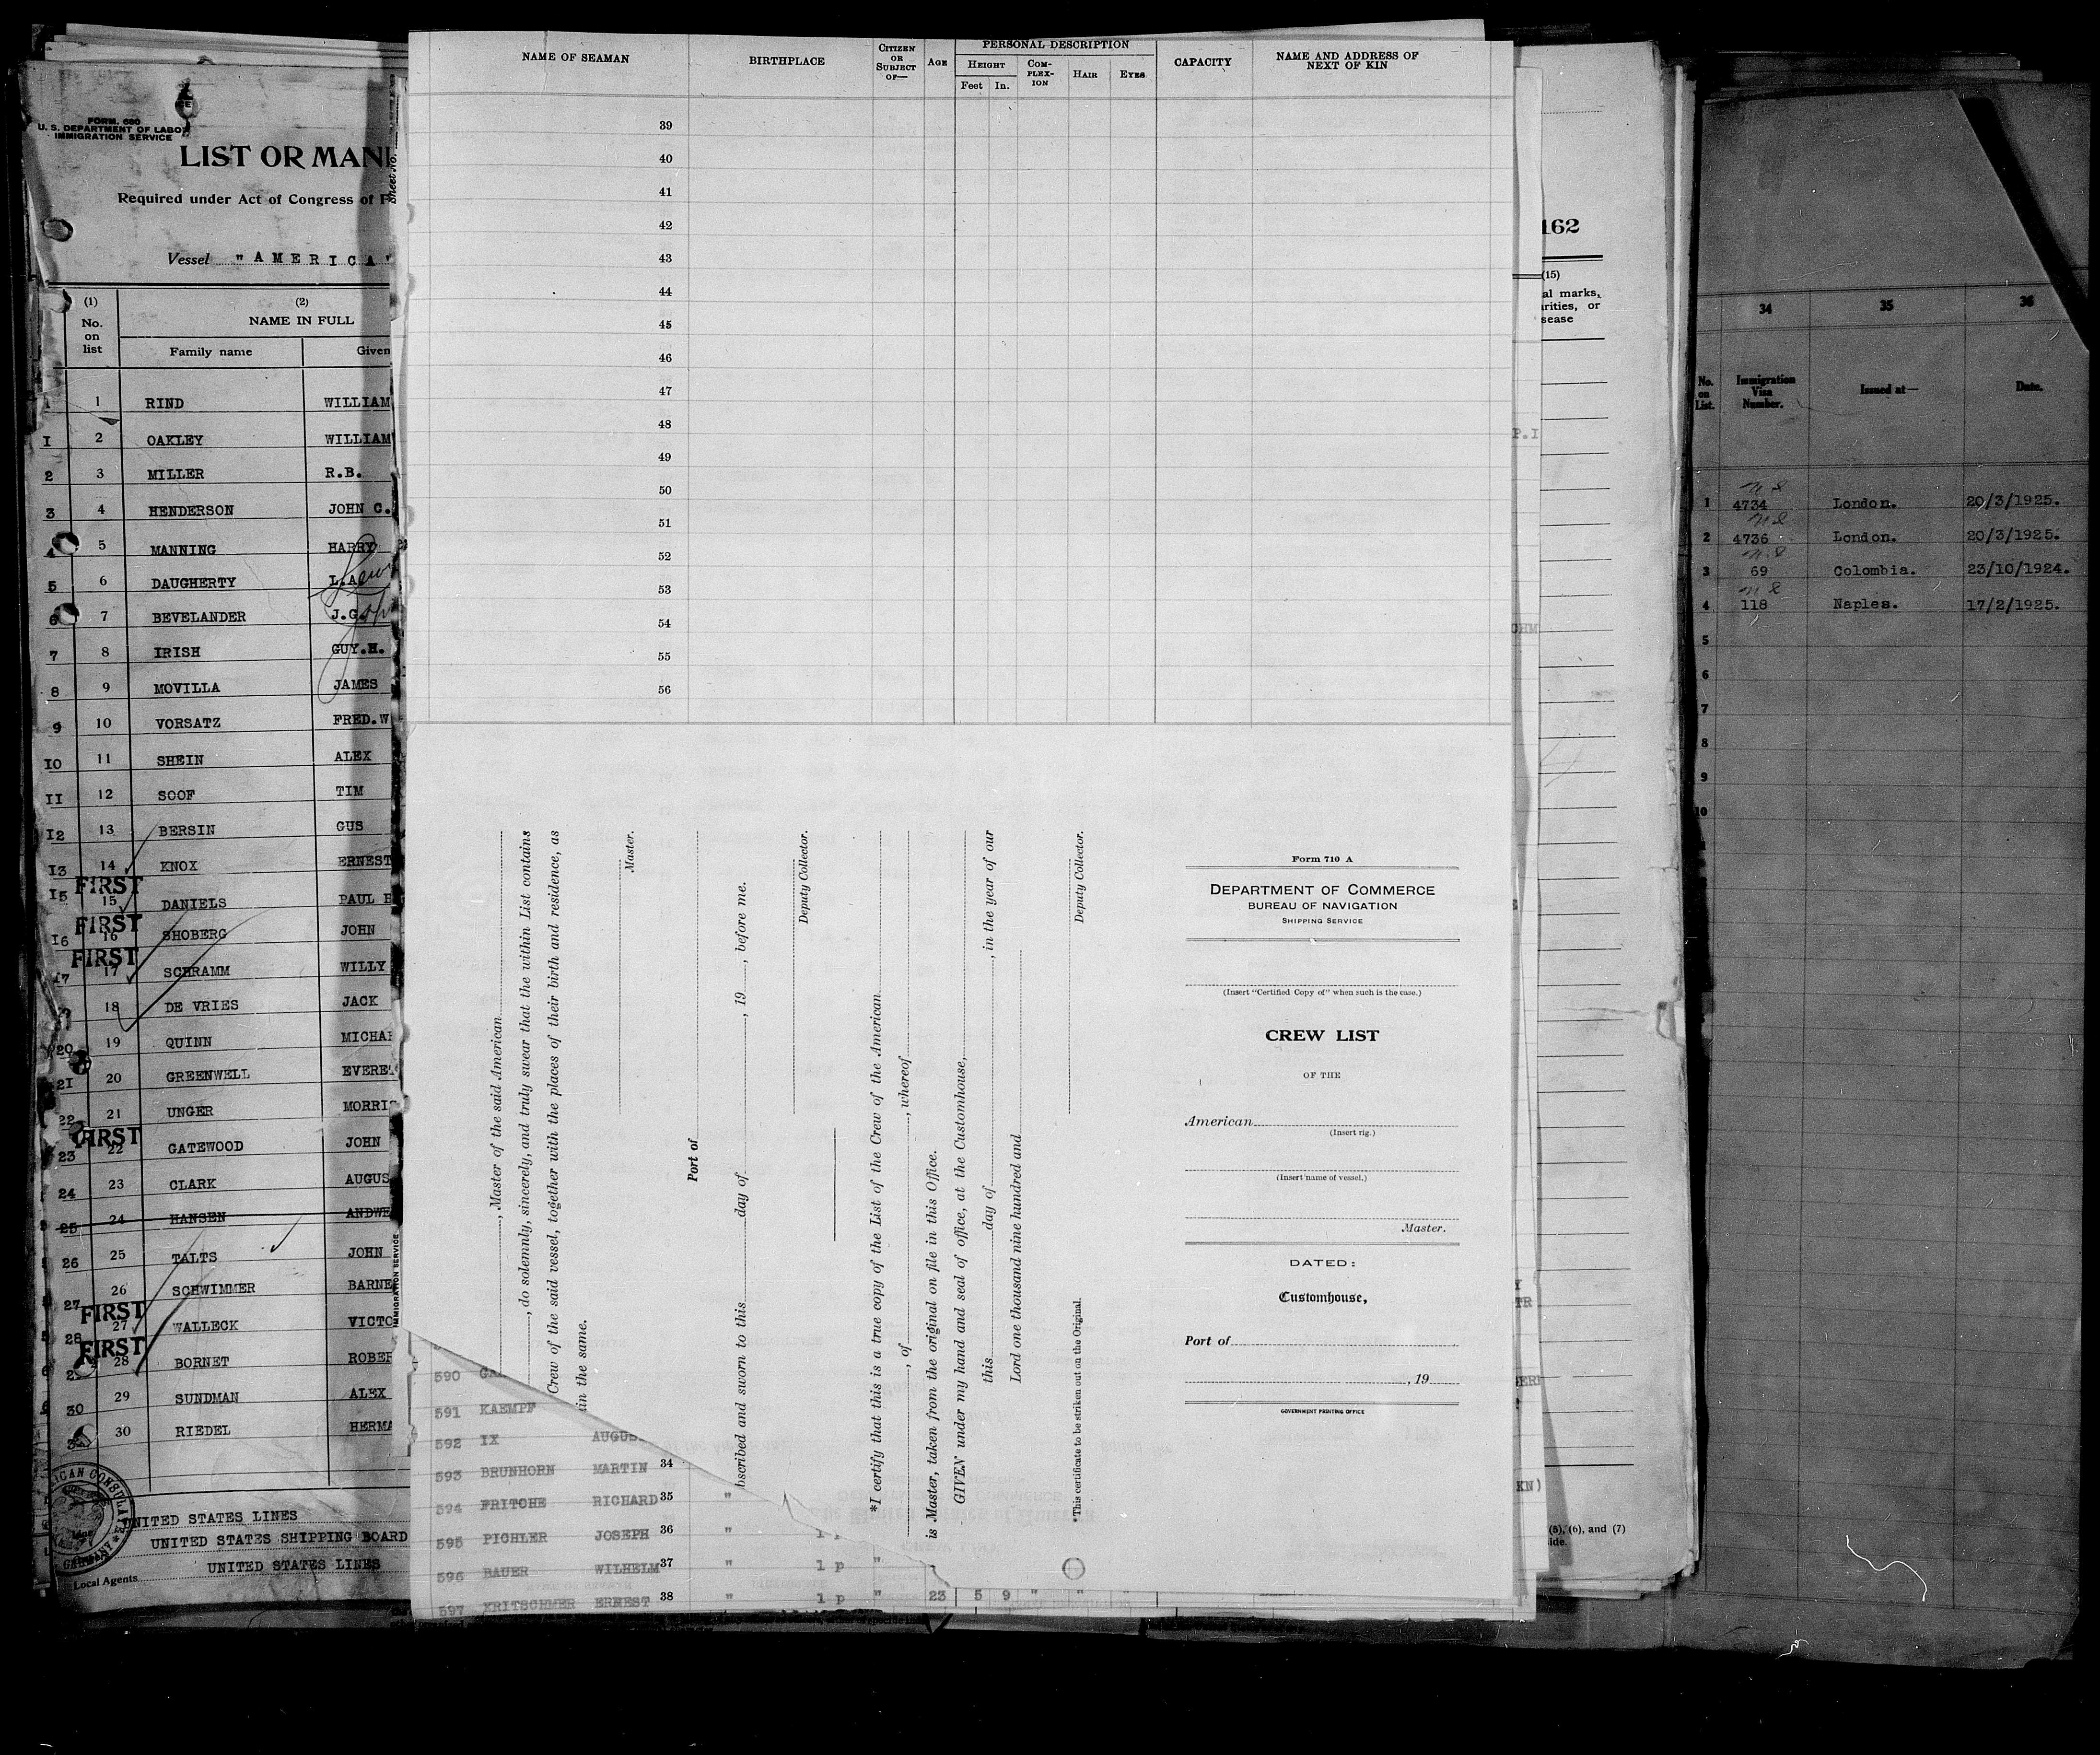 FORM. 680
U. S. DEPARTMENT OF LABOR
IMMIGRATION SERVICE
LIST OR MANI
Required under Act of Congress of F
Vessel "AMERICA"
(1) (2)
No. on list NAME IN FULL
Family name Given
1 RIND WILLIAM
I 2 OAKLEY WILLIAM
2 3 MILLER R.B.
3 4 HENDERSON JOHN C.
4 5 MANNING HARRY
5 6 DAUGHERTY L.A.
6 7 BEVELANDER J.G.
7 8 IRISH GUY.H.
8 9 MOVILLA JAMES
9 10 VORSATZ FRED.W
IO 11 SHEIN ALEX
II 12 SOOF TIM
I2 13 BERSIN GUS
I3 14 KNOX ERNEST
FIRST
I5 15 DANIELS PAUL
FIRST
I6 16 SHOBERG JOHN
FIRST
17 17 SCHRAMM WILLY
18 DE VRIES JACK
20 19 QUINN MICHAE
21 20 GREENWELL EVERE
22 21 UNGER MORRIS
FIRST
23 22 GATEWOOD JOHN
24 23 CLARK AUGUS
25 24 HANSEN ANDWE
26 25 TALTS JOHN
26 SCHWIMMER BARNE
27 FIRST
27 WALLECK VICTO
28 FIRST
28 BORNET ROBER
29 SUNDMAN ALEX
30 30 RIEDEL HERMA
ICAN CONSULATE
GERMANY
UNITED STATES LINES
UNITED STATES SHIPPING BOARD
Local Agents UNITED STATES LINES
Sheet No.
IMMIGRATION SERVICE
NAME OF SEAMAN BIRTHPLACE CITIZEN OR SUBJECT OF— AGE PERSONAL DESCRIPTION CAPACITY NAME AND ADDRESS OF NEXT OF KIN
HEIGHT COM-PLEX-ION HAIR EYES
Feet In.
39
40
41
42
43
44
45
46
47
48
49
50
51
52
53
54
55
56
, Master of the said American
, do solemnly, sincerely, and truly swear that the within List contains
Crew of the said vessel, together with the places of their birth and residence, as
in the same.
Master.
Port of
bscribed and sworn to this day of , 19 , before me.
Deputy Collector.
*I certify that this is a true copy of the List of the Crew of the American
, of , whereof
is Master, taken from the original on file in this Office.
GIVEN under my hand and seal of office, at the Customhouse,
this day of , in the year of our
Lord one thousand nine hundred and
Deputy Collector.
*This certificate to be striken out on the Original.
Form 710 A
DEPARTMENT OF COMMERCE
BUREAU OF NAVIGATION
SHIPPING SERVICE
(Insert "Certified Copy of" when such is the case.)
CREW LIST
OF THE
American
(Insert rig.)
(Insert name of vessel.)
Master.
DATED:
Customhouse,
Port of
, 19
GOVERNMENT PRINTING OFFICE
590
591 KAEMPF
592 IX AUGUS
593 BRUNHORN MARTIN 34
594 FRITCHE RICHARD 35 "
595 PICHLER JOSEPH 36 "
596 BAUER WILHELM 37 " 1 p "
597 KRITSCHMER ERNEST 38 " 1 p " 23 5 9 " " "
162
(15)
al marks,
arities, or
sease
P.I
OHM
TR
KN)
(5), (6), and (7)
ide.
34 35 36
No. on List. Immigration Visa Number. Issued at— Date.
1 4734 London. 20/3/1925.
2 4736 London. 20/3/1925.
3 69 Colombia. 23/10/1924.
4 118 Naples. 17/2/1925.
5
6
7
8
9
10